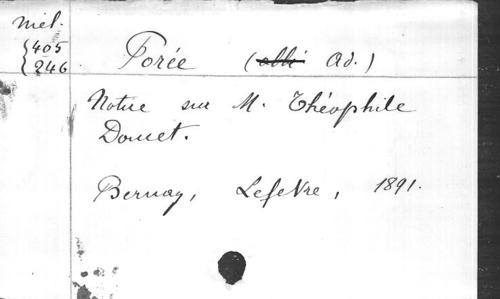 Mél.
{405
{246
Forée (abbé Ad.)
Notice sur M. Théophile
Doucet.
Bernay, Lefèvre, 1891.